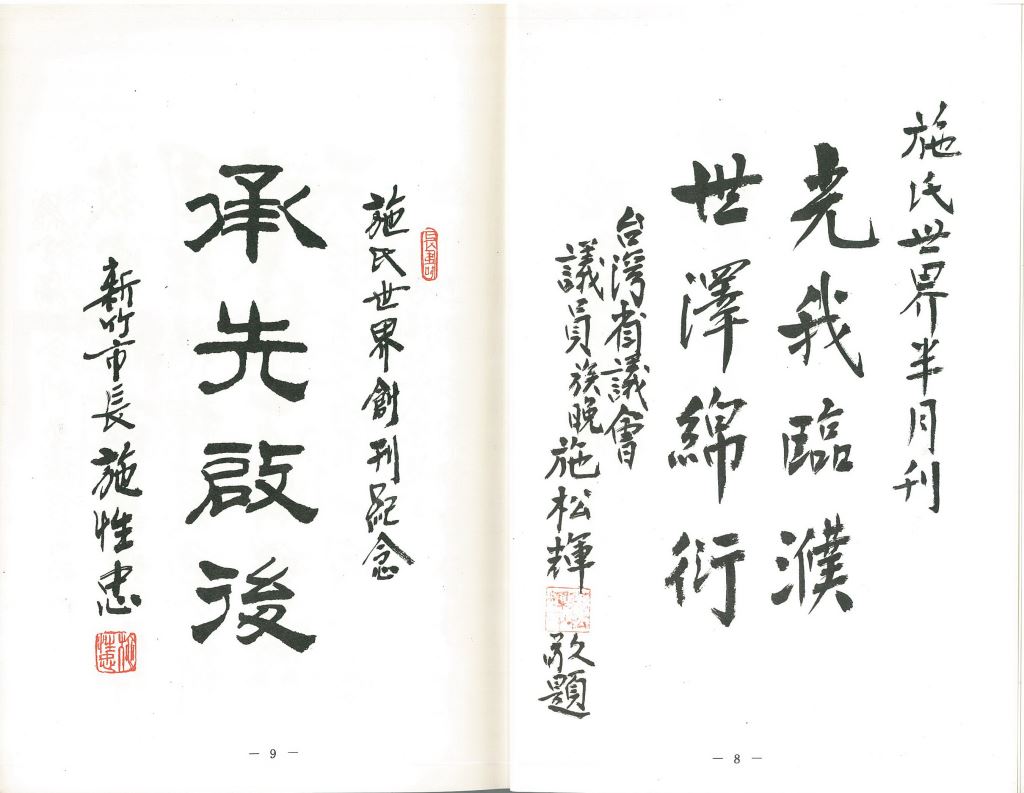 施氏世界半月刊
光我臨濮
世澤綿衍
台灣省議會
議員族晚施松輝敬題
－ 8 －
施氏世界創刊紀念
承先啟後
新竹市長施性忠
－ 9 －